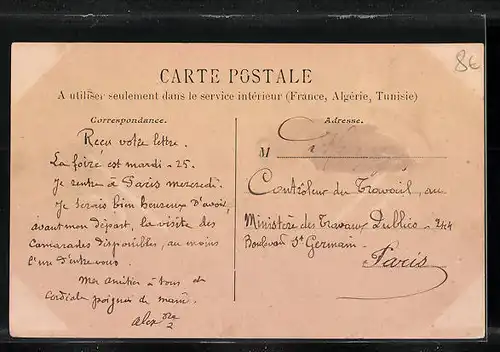 8€
CARTE POSTALE
A utiliser seulement dans le service intérieur (France, Algérie, Tunisie)
Correspondance.
Reçu votre lettre.
La foire est mardi - 25.
Je rentre à Paris mercredi.
Je serais bien heureux d'avoir,
avant mon départ, la visite des
Camarades disponibles, au moins
l'un d'entre vous.
Mes amitiés à tous et
cordiale poignée de main.
Adresse.
M
Contrôleur du Travail, au
Ministère des Travaux Publics - 244
Boulevard St Germain -
Paris